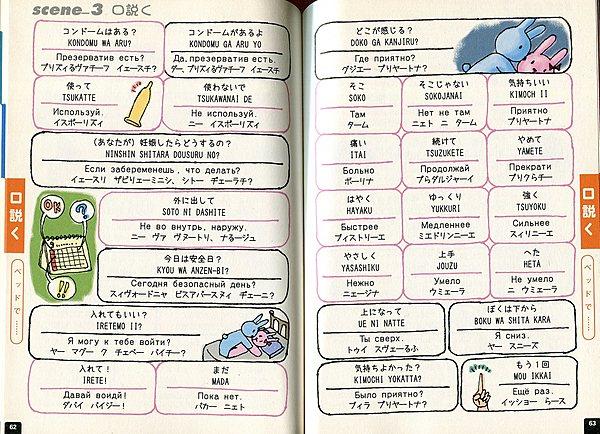 scene_3 口説く
コンドームはある?
KONDOMU WA ARU?
Презерватив есть?
プリズィるヴァチーフ イェースチ?
コンドームがあるよ
KONDOMU GA ARU YO
Да, презерватив есть.
ダー プりズィるヴァチーフ イェースチ
使って
TSUKATTE
Используй.
イスポーりズィ
使わないで
TSUKAWANAI DE
Не используй.
ニー イスポーりズィ
(あなたが)妊娠したらどうするの?
NINSHIN SHITARA DOUSURU NO?
Если забеременешь, что делать?
イェースリ ザビりェーミニシ、シトー ヂェーラチ?
OK
?
!!
外に出して
SOTO NI DASHITE
Не во внутрь, наружу.
ニー ヴァ ヴヌートリ、ナるージュ
今日は安全日?
KYOU WA ANZEN-BI?
Сегодня безопасный день?
スィヴォードニャ ビスアパースヌイ ヂェーニ?
入れてもいい?
IRETEMO II?
Я могу к тебе войти?
ヤー マグー ク チェベー バイチー?
入れて!
IRETE!
Давай войди!
ダバイ バイジー!
まだ
MADA
Пока нет.
パカー ニェト
62
口説く
ベッドで……
どこが感じる?
DOKO GA KANJIRU?
Где приятно?
グジェー プりヤートナ?
そこ
SOKO
Там
ターム
そこじゃない
SOKOJANAI
Нет не там
ニェト ニ ターム
気持ちいい
KIMOCH II
Приятно
プリヤートナ
痛い
ITAI
Больно
ボーリナ
続けて
TSUZUKETE
Продолжай
プらダルジャーイ
やめて
YAMETE
Прекрати
プリクらチー
はやく
HAYAKU
Быстрее
ブィストリーエ
ゆっくり
YUKKURI
Медленнее
ミエドリンニーエ
強く
TSUYOKU
Сильнее
スィリニーエ
やさしく
YASASHIKU
Нежно
ニェージナ
上手
JOUZU
Умело
ウミェーラ
へた
HETA
Не умело
ニ ウミェーラ
上になって
UE NI NATTE
Ты сверх.
トゥイ スヴェーるふ
ぼくは下から
BOKU WA SHITA KARA
Я сниз.
ヤー スニーズ
気持ちよかった?
KIMOCHI YOKATTA?
Было приятно?
ブィラ プリヤートナ?
もう1回
MOU IKKAI
Ещё раз.
イッショー らース
63
口説く
ベッドで……